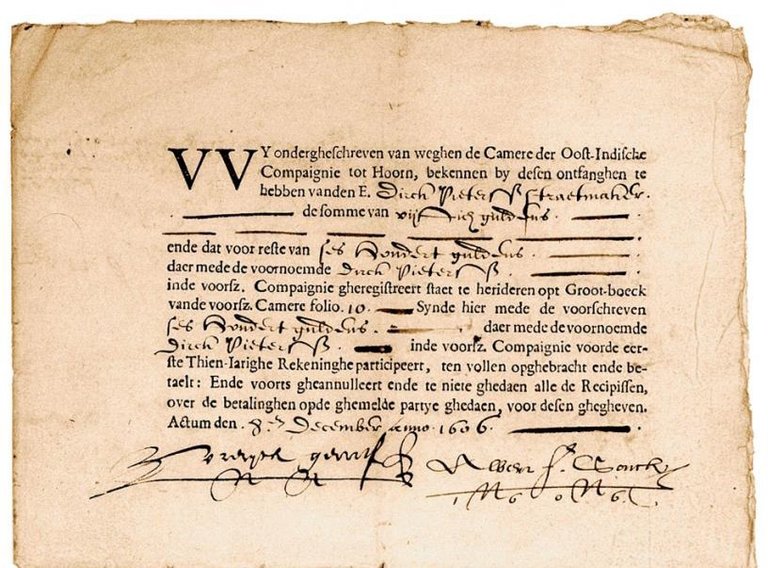 VVY ondergheſchreven van weghen de Camere der Ooſt-Indiſche
Compaignie tot Hoorn, bekennen by deſen ontfanghen te
hebben vanden E. Dirck Pieterſz Straetmaker.
de ſomme van vijftich guldens.
ende dat voor reſte van ſes hondert guldens.
daer mede de voornoemde Dirck Pieterſz.
inde voorſz. Compaignie gheregiſtreert ſtaet te herideren opt Groot-boeck
vande voorſz. Camere folio. 10. Synde hier mede de voorſchreven
ſes hondert guldens. daer mede de voornoemde
Dirck Pieterſz. inde voorſz. Compaignie voorde eer-
ſte Thien-Iarighe Rekeninghe participeert, ten vollen opghebracht ende be-
taelt: Ende voorts gheannulleert ende te niete ghedaen alle de Recipiſſen,
over de betalinghen opde ghemelde partye ghedaen, voor deſen ghegheven.
Actum den. December anno. 1606.